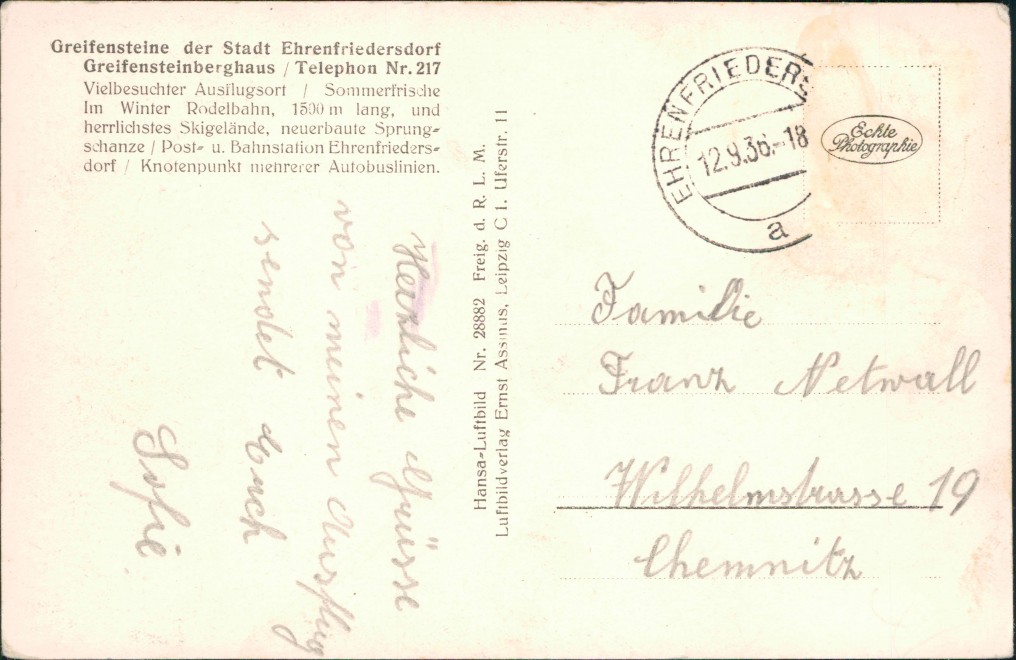 Greifensteine der Stadt Ehrenfriedersdorf
Greifensteinberghaus / Telephon Nr. 217
Vielbesuchter Ausflugsort / Sommerfrische
Im Winter Rodelbahn, 1500 m lang, und
herrlichstes Skigelände, neuerbaute Sprung-
schanze / Post- u. Bahnstation Ehrenfrieders-
dorf / Knotenpunkt mehrerer Autobuslinien.
Herzliche Grüsse
von meinen Ausflug
sendet Euch
Sofie.
Hansa-Luftbild Nr. 28882 Freig. d. R. L. M.
Luftbildverlag Ernst Assmus, Leipzig C 1. Uferstr. 11
EHRENFRIEDERS
12.9.36.-18
a
Echte
Photographie
Familie
Franz Netwall
Wilhelmstrasse 19
Chemnitz